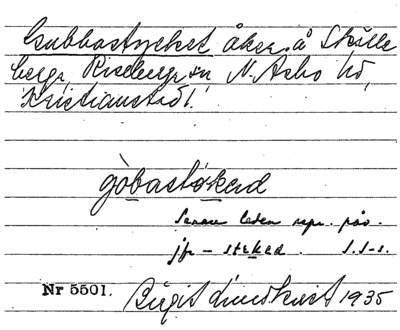 Gubbastycket åker å Skälle
berga, Riseberga sn N. Åsbo hd,
Kristianstad l.
gòbastøkad
Senare leden repr.
jfr – stekad. S.S-s.
Nr 5501. Birgit Lindkvist 1935